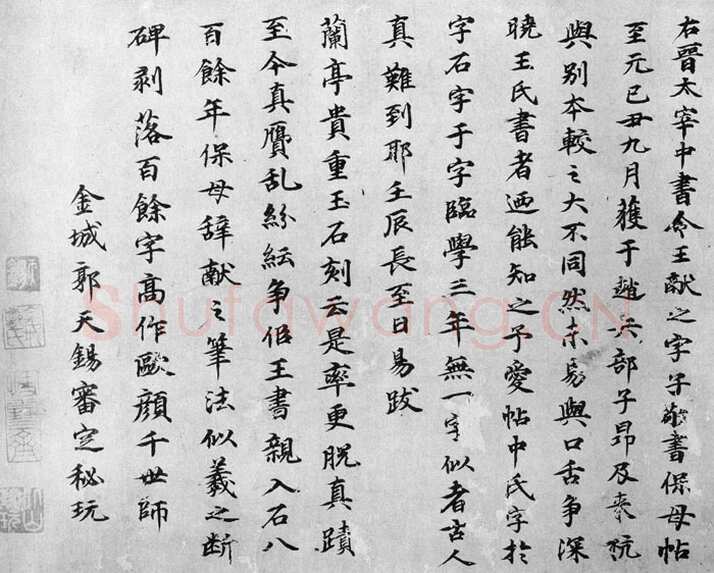 右晉太宰中書令王献之字子敬書保母帖
至元己丑九月獲于趙兵部子昂及来杭
與别本較之大不同然未易與口舌争深
曉王氏書者迺能知之予愛帖中氏字於
字石字于字臨學三年無一字似者古人
真難到耶壬辰長至日易跋
蘭亭貴重玉石刻云是率更脱真蹟
至今真贋乱紛紜争侣王書親入石八
百餘年保母辞献之筆法似羲之断
碑剥落百餘字高作歐顔千世師
金城郭天錫審定秘玩
Shufawang.CN